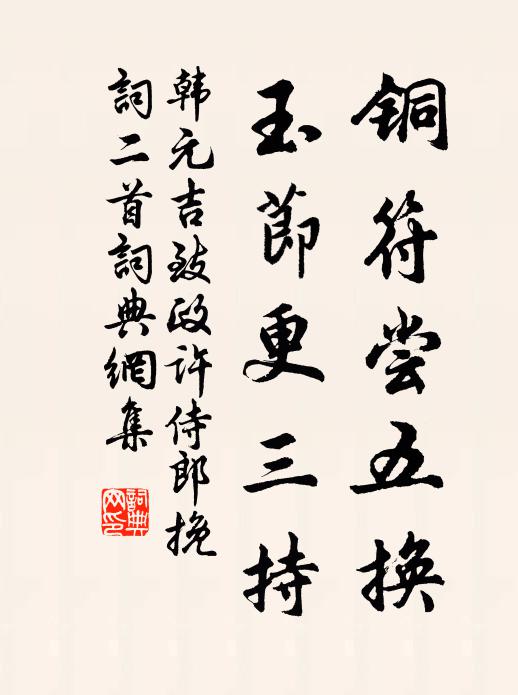 铜符尝五换
玉節更三持
韩元吉致政许侍郎挽
詞二首詞典網集
詞典网印